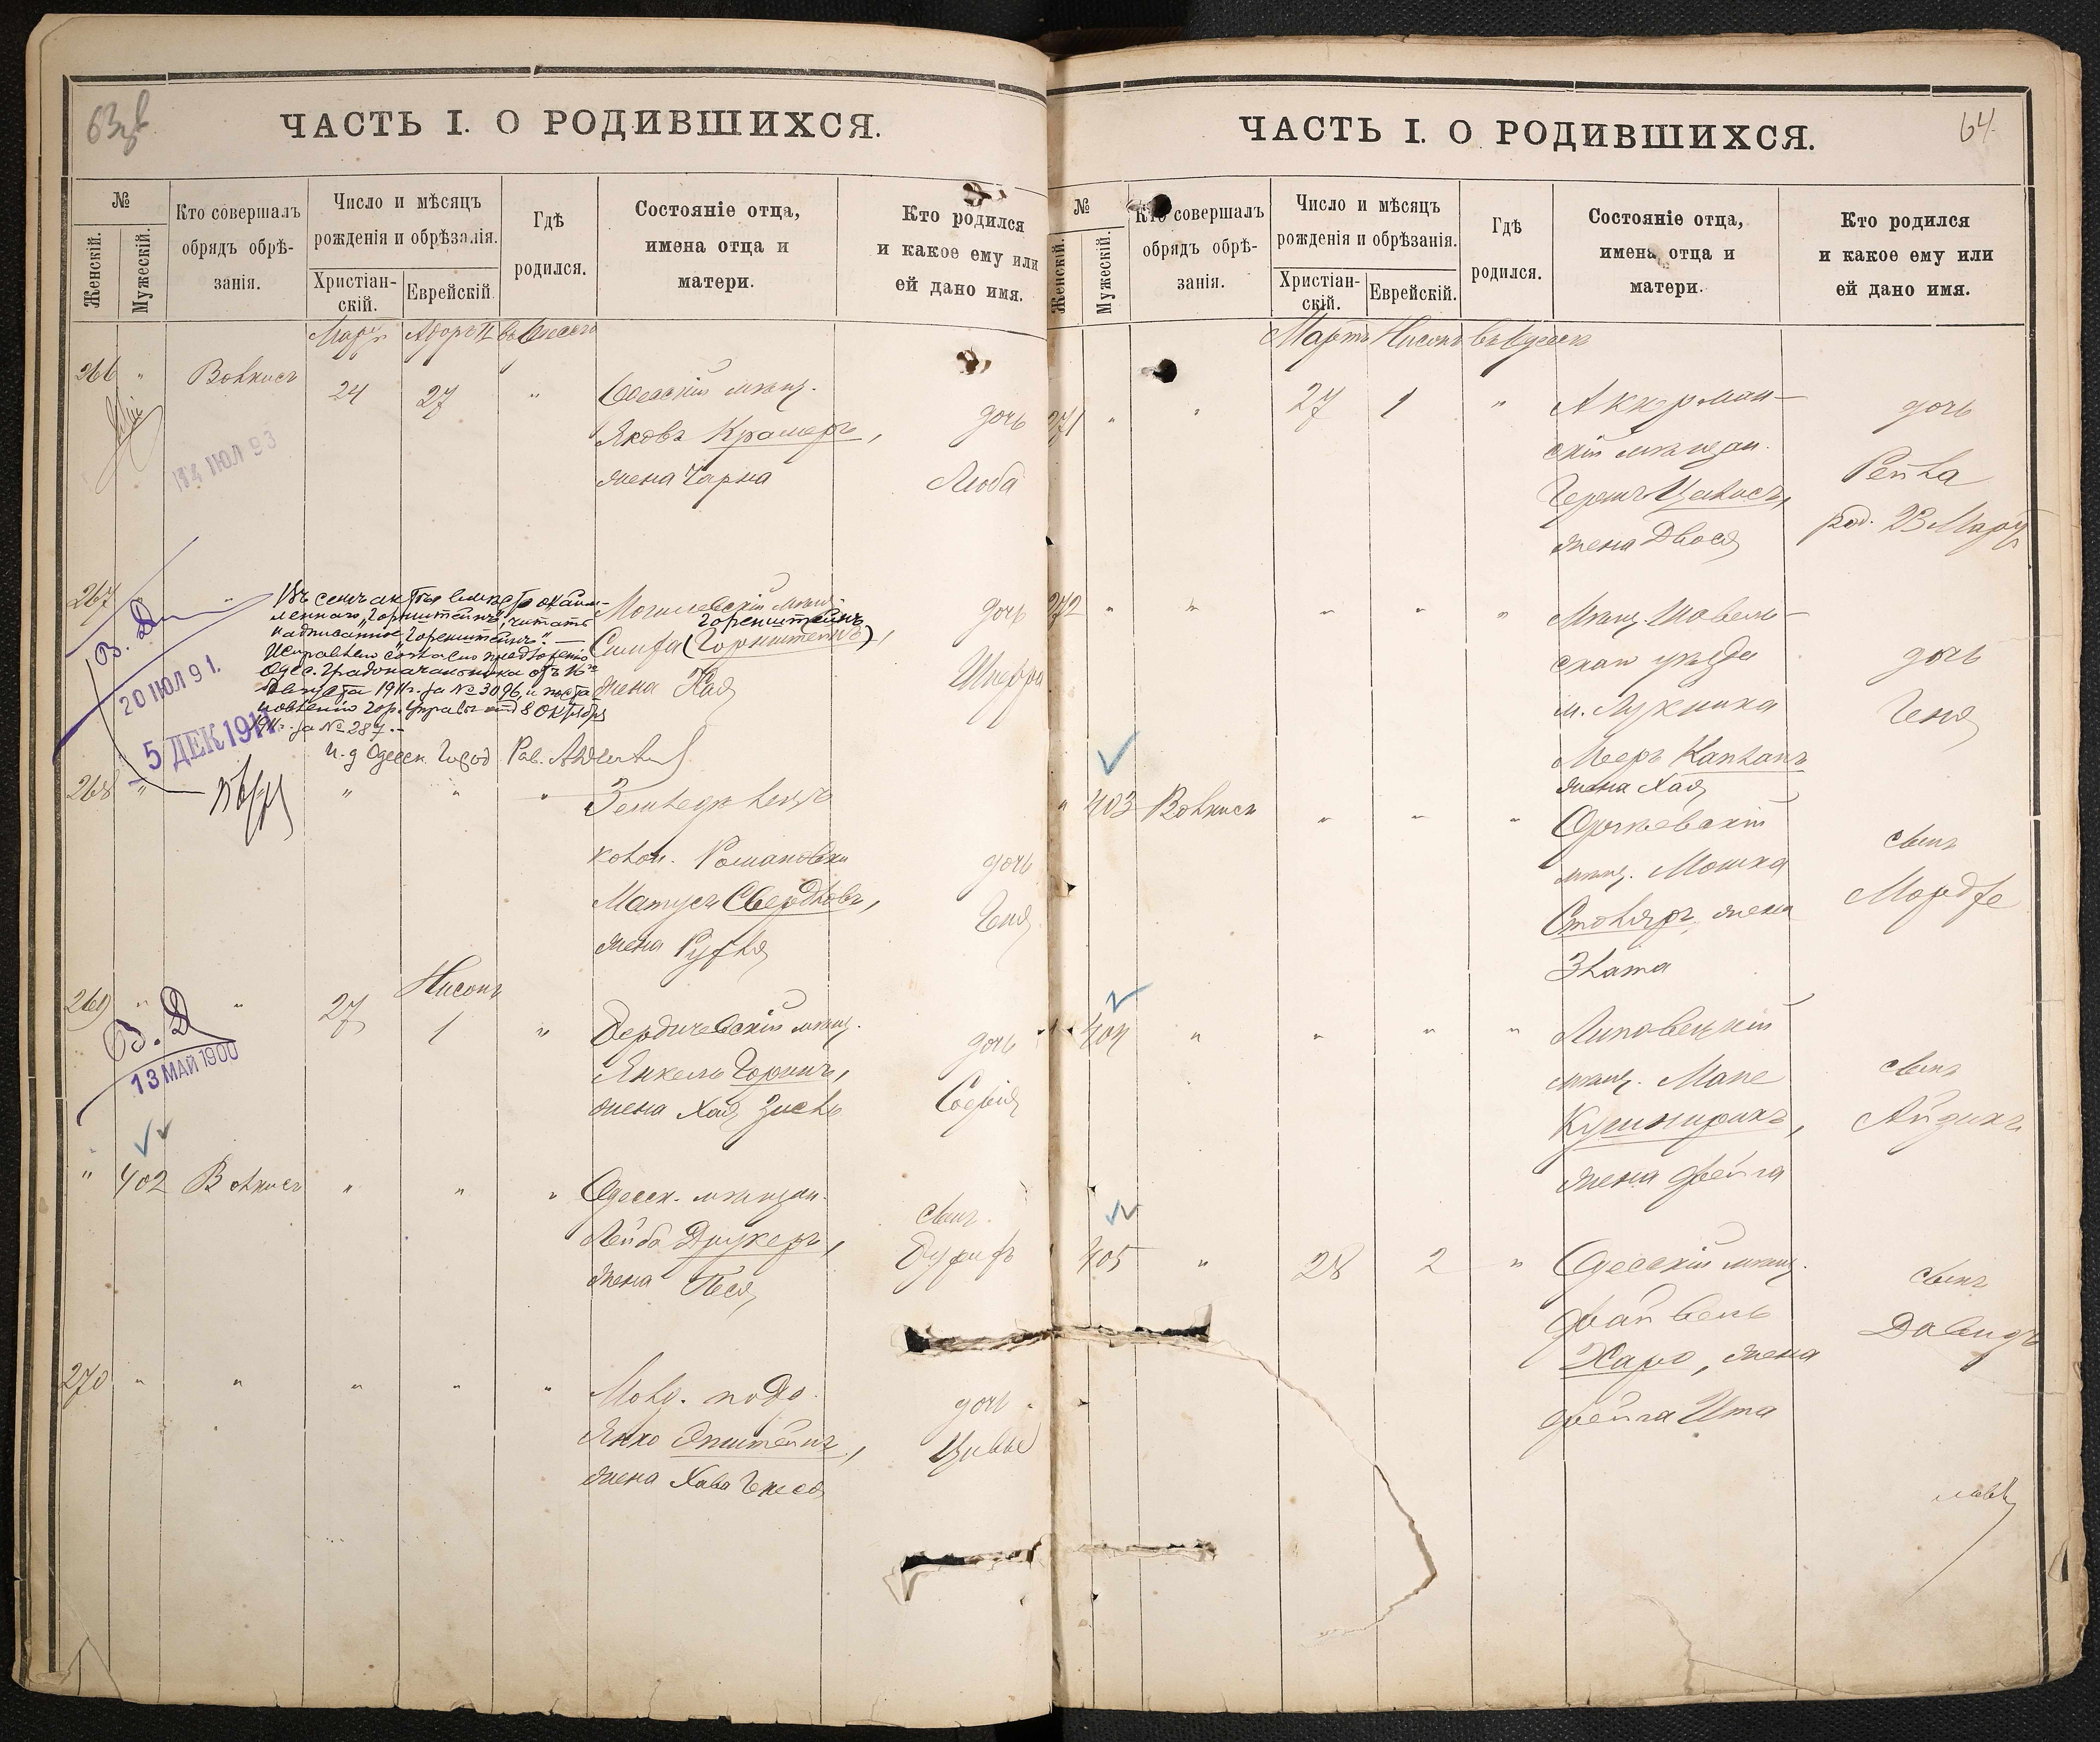 ЧАСТЬ I. О РОДИВШИХСЯ.
№
Женскій.
Мужескій.
Кто совершалъ
обрядъ обрѣ-
занія.
Число и мѣсяцъ
рожденія и обрѣзанія.
Христіан-
скій.
Еврейскій.
Гдѣ
родился.
Состояніе отца,
имена отца и
матери.
Кто родился
и какое ему или
ей дано имя.
Мартъ Адоръ II въ Одессѣ
266 " Волкисъ 24 27 " Одесскій мѣщ.
Яковъ Крамеръ, дочь
жена Чарна Люба
14 ІЮЛ 93
267 " " Могилевскій мѣщ.
Горенштейнъ
(Горнштейнъ), дочь
жена Хая
Въ семъ актѣ вмѣсто
"Горнштейнъ", читать
надписанное "Горенштейнъ". —
Исправлено согласно предложенію
Одес. Градоначальника отъ 16го
Августа 1911 г. за № 3096, и поста-
новленію Гор. Управы отъ 8 Октября
1911 г. за № 287. –
И. д. Одесск. Город. Рав.
В. Д.
20 ІЮЛ 91.
5 ДЕК 1911
268 " " " " Земледѣлецъ
колон. Романовки
Матусъ Свердловъ, дочь
жена Рухля Геня
Нисонъ
269 " " 27 1 " Бердичевскій мѣщ.
Янкель Горинъ, дочь
жена Хая Зисль Софія
В. Д.
13 МАЙ 1900
" 402 Волкисъ " " " Одесск. мѣщан.
Лейба Друкеръ, сынъ
жена Песя
270 " " " " " Молд. подд.
Янко Эпштейнъ, дочь
жена Хава Генеся
ЧАСТЬ I. О РОДИВШИХСЯ.
64.
№
Женскій.
Мужескій.
Кто совершалъ
обрядъ обрѣ-
занія.
Число и мѣсяцъ
рожденія и обрѣзанія.
Христіан-
скій.
Еврейскій.
Гдѣ
родился.
Состояніе отца,
имена отца и
матери.
Кто родился
и какое ему или
ей дано имя.
Мартъ Нисонъ въ Одессѣ
271 " " 27 1 " Аккерман-
скій мѣщан. дочь
Рейла
жена Двося род. 23 Марта
272 " " " " " Мѣщ. Шавель-
скаго уѣзда дочь
м. Лукника Геня
Мееръ Капланъ
жена Хая
" 403 Волкисъ " " " Оргѣевскій
мѣщ. Мошка сынъ
Столяръ, жена Мордхе
Злата
" 404 " " " " Липовецкій
мѣщ. Мане сынъ
Кушниръ, Айзикъ
жена Фейга
405 " 28 2 " Одесскій мѣщ.
Файвель сынъ
Харо, жена Давидъ
Фейга Ита